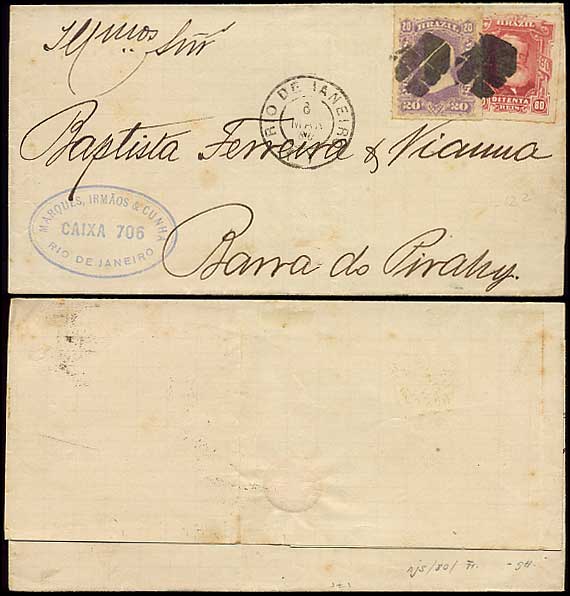 Illmos Snr
BRAZIL
20 20
20 20
BRAZIL
OITENTA
REIS
80
RIO DE JANEIRO
6
MAR
Baptista Ferreira & Vianna
MARQUES, IRMÃOS & CUNHA
CAIXA 706
RIO DE JANEIRO
Barra do Pirahy.
122